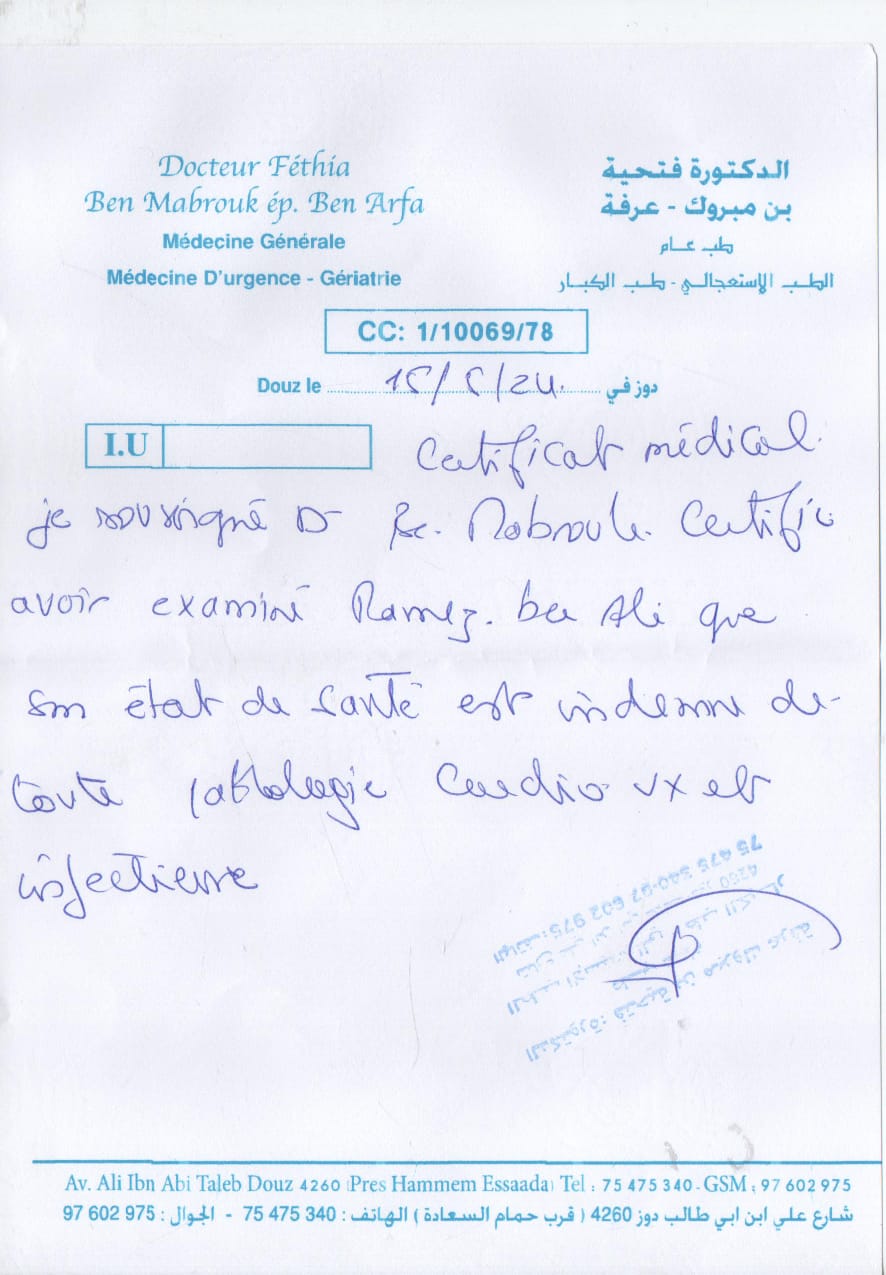 Docteur Féthia
Ben Mabrouk ép. Ben Arfa
Médecine Générale
Médecine D'urgence - Gériatrie
الدكتورة فتحية
بن مبروك - عرفة
طب عام
الطب الإستعجالي - طب الكبار
CC: 1/10069/78
Douz le 15/5/24. دوز في
I.U
Certificat médical.
je soussigné Dr Be. Mabrouk. Certifie
avoir examiné Ramez. ben Ali que
son état de santé est indemne de
toute pathologie Cardio vx et
infectieuse
75 475 340-97 602 975 : الهاتف
4260
الدكتورة: فتحية بن مبروك عرفة
Av. Ali Ibn Abi Taleb Douz 4260 (Pres Hammem Essaada) Tel : 75 475 340 - GSM : 97 602 975
شارع علي ابن ابي طالب دوز 4260 ( قرب حمام السعادة ) الهاتف : 340 475 75 - الجوال : 975 602 97